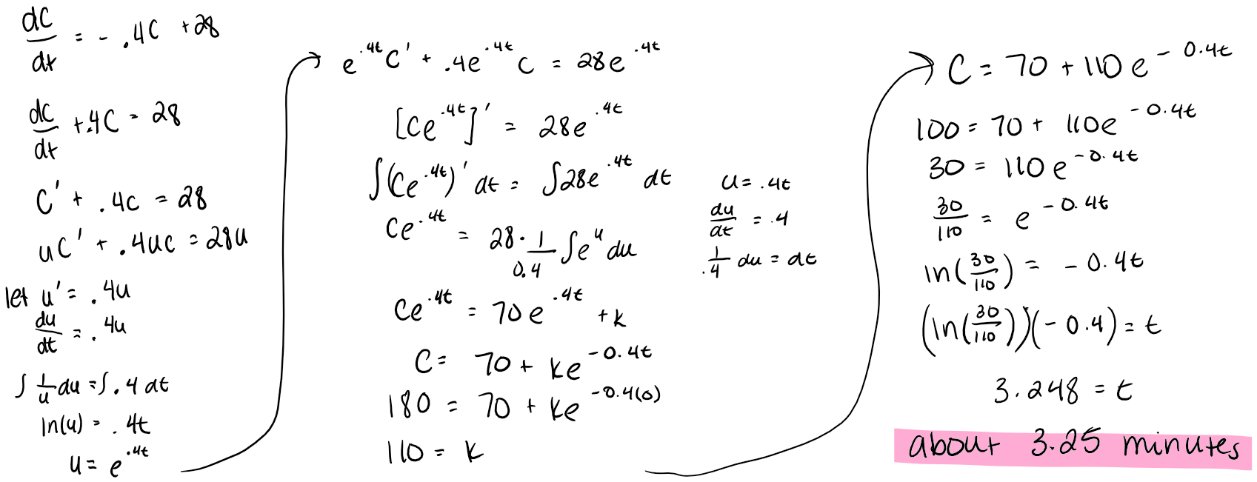 dC/dt = - .4C +28
dC/dt +.4C = 28
C' + .4C = 28
uC' + .4uC = 28u
let u' = .4u
du/dt = .4u
∫ 1/u du = ∫ .4 dt
ln(u) = .4t
u = e^.4t
e^.4t C' + .4e^.4t C = 28e^.4t
[Ce^.4t]' = 28e^.4t
∫(Ce^.4t)' dt = ∫28e^.4t dt
Ce^.4t = 28 · 1/0.4 ∫e^u du
Ce^.4t = 70e^.4t + k
C = 70 + ke^-0.4t
180 = 70 + ke^-0.4(0)
110 = k
u = .4t
du/dt = .4
1/.4 du = dt
C = 70 + 110 e^-0.4t
100 = 70 + 110e^-0.4t
30 = 110 e^-0.4t
30/110 = e^-0.4t
ln(30/110) = -0.4t
(ln(30/110))(-0.4) = t
3.248 = t
about 3.25 minutes